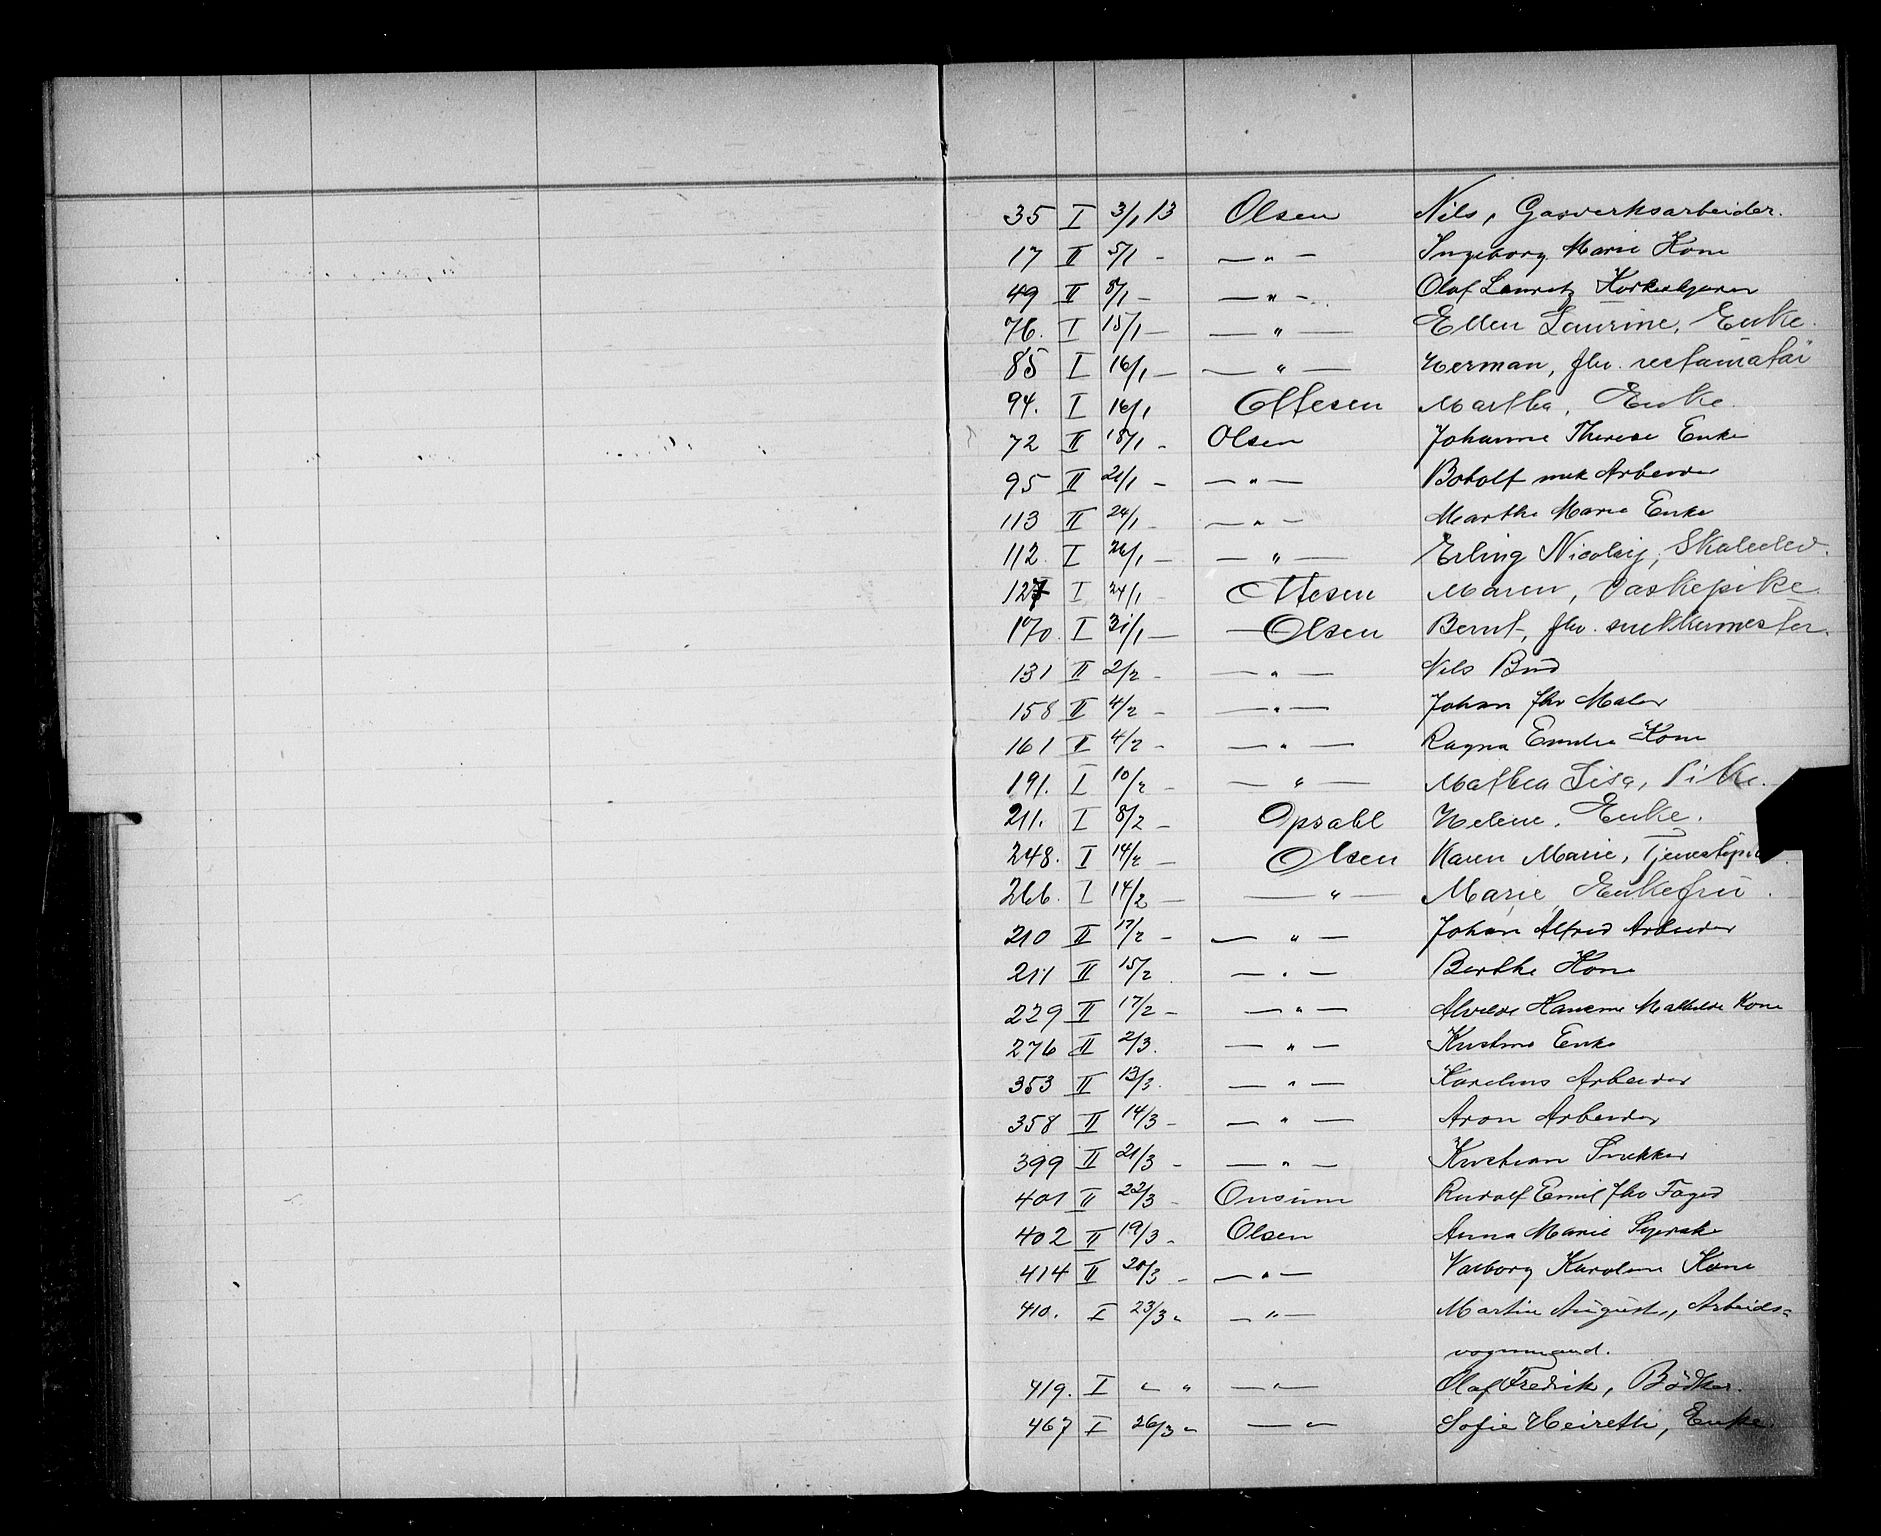 35 I 3/1 13 Olsen Nils, Gasverksarbeider.
17 II 5/1 - — " — Ingeborg Marie Kone
49 II 8/1 - — " — Olaf Lauretz
76. I 15/1 — — " — Ellen Laurine, Enke.
85 I 16/1 — — " — Herman, fhv. restauratör
94. I 16/1 Ottesen Martha, Enke.
72 II 18/1 - Olsen Johanne Therese Enke
95 II 21/1 - — " — Botolf mek Arbeider
113 II 24/1 - — " — Marthe Marie Enke
112. I 26/1 — — " — Erling Nicolay, Skoleelev.
127 I 24/1 - Ottesen Maren, Vaskepike.
170. I 31/1 — Olsen Bernt, fhv. snekkermester.
131 II 2/2 - — " — Nils Bud
158 II 4/2 - — " — Johan fhv Maler
161 II 4/2 - — " — Ragna Emilie Kone
191. I 10/2 - — " — Mathea Lisa, Pike.
211. I 8/2 - Opsahl Helene, Enke.
248. I 14/2 — Olsen Karen Marie,
266. I 14/2 — — " — Marie, Enkefru.
210 II 17/2 - — " — Johan Alfred Arbeider
211 II 15/2 — " — Berthe Kone
229 II 17/2 - — " — Alvilde Hansine Mathilde Kone
276 II 2/3. — " — Kristine Enke
353 II 13/3. — " — Karelius Arbeider
358 II 14/3 - — " — Aron Arbeider
399 II 21/3 - — " — Kristian Snekker
401 II 22/3 - Onsum Rudolf Emil fhv Foged
402 II 19/3 - Olsen Anna Marie Syerske
414 II 20/3 - — " — Valborg Karoline Kone
410. I 23/3 " — " — Martin August, Arbeids=
vognmand.
419. I " " — " — Olaf Fredrik, Bödker.
467 I 26/3 " — " Sofie Heireth, Enke.